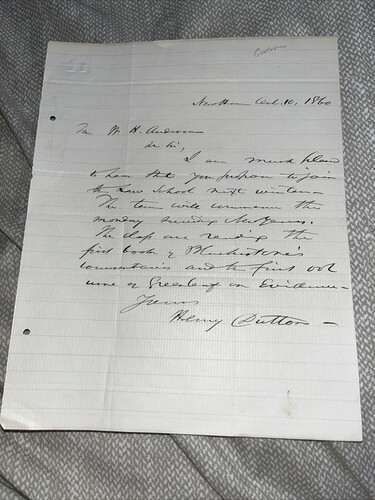 Governor
New Haven Oct. 10, 1860
Mr W. H. Anderson
Dr Sir,
I am much pleased
to learn that you propose to join
the Law School next winter
The term will commence the
monday succeeding New Years.
The class are reading the
first book of Blackstone's
commentaries and the first vol
ume of Greenleaf on Evidence
Yours
Henry Dutton